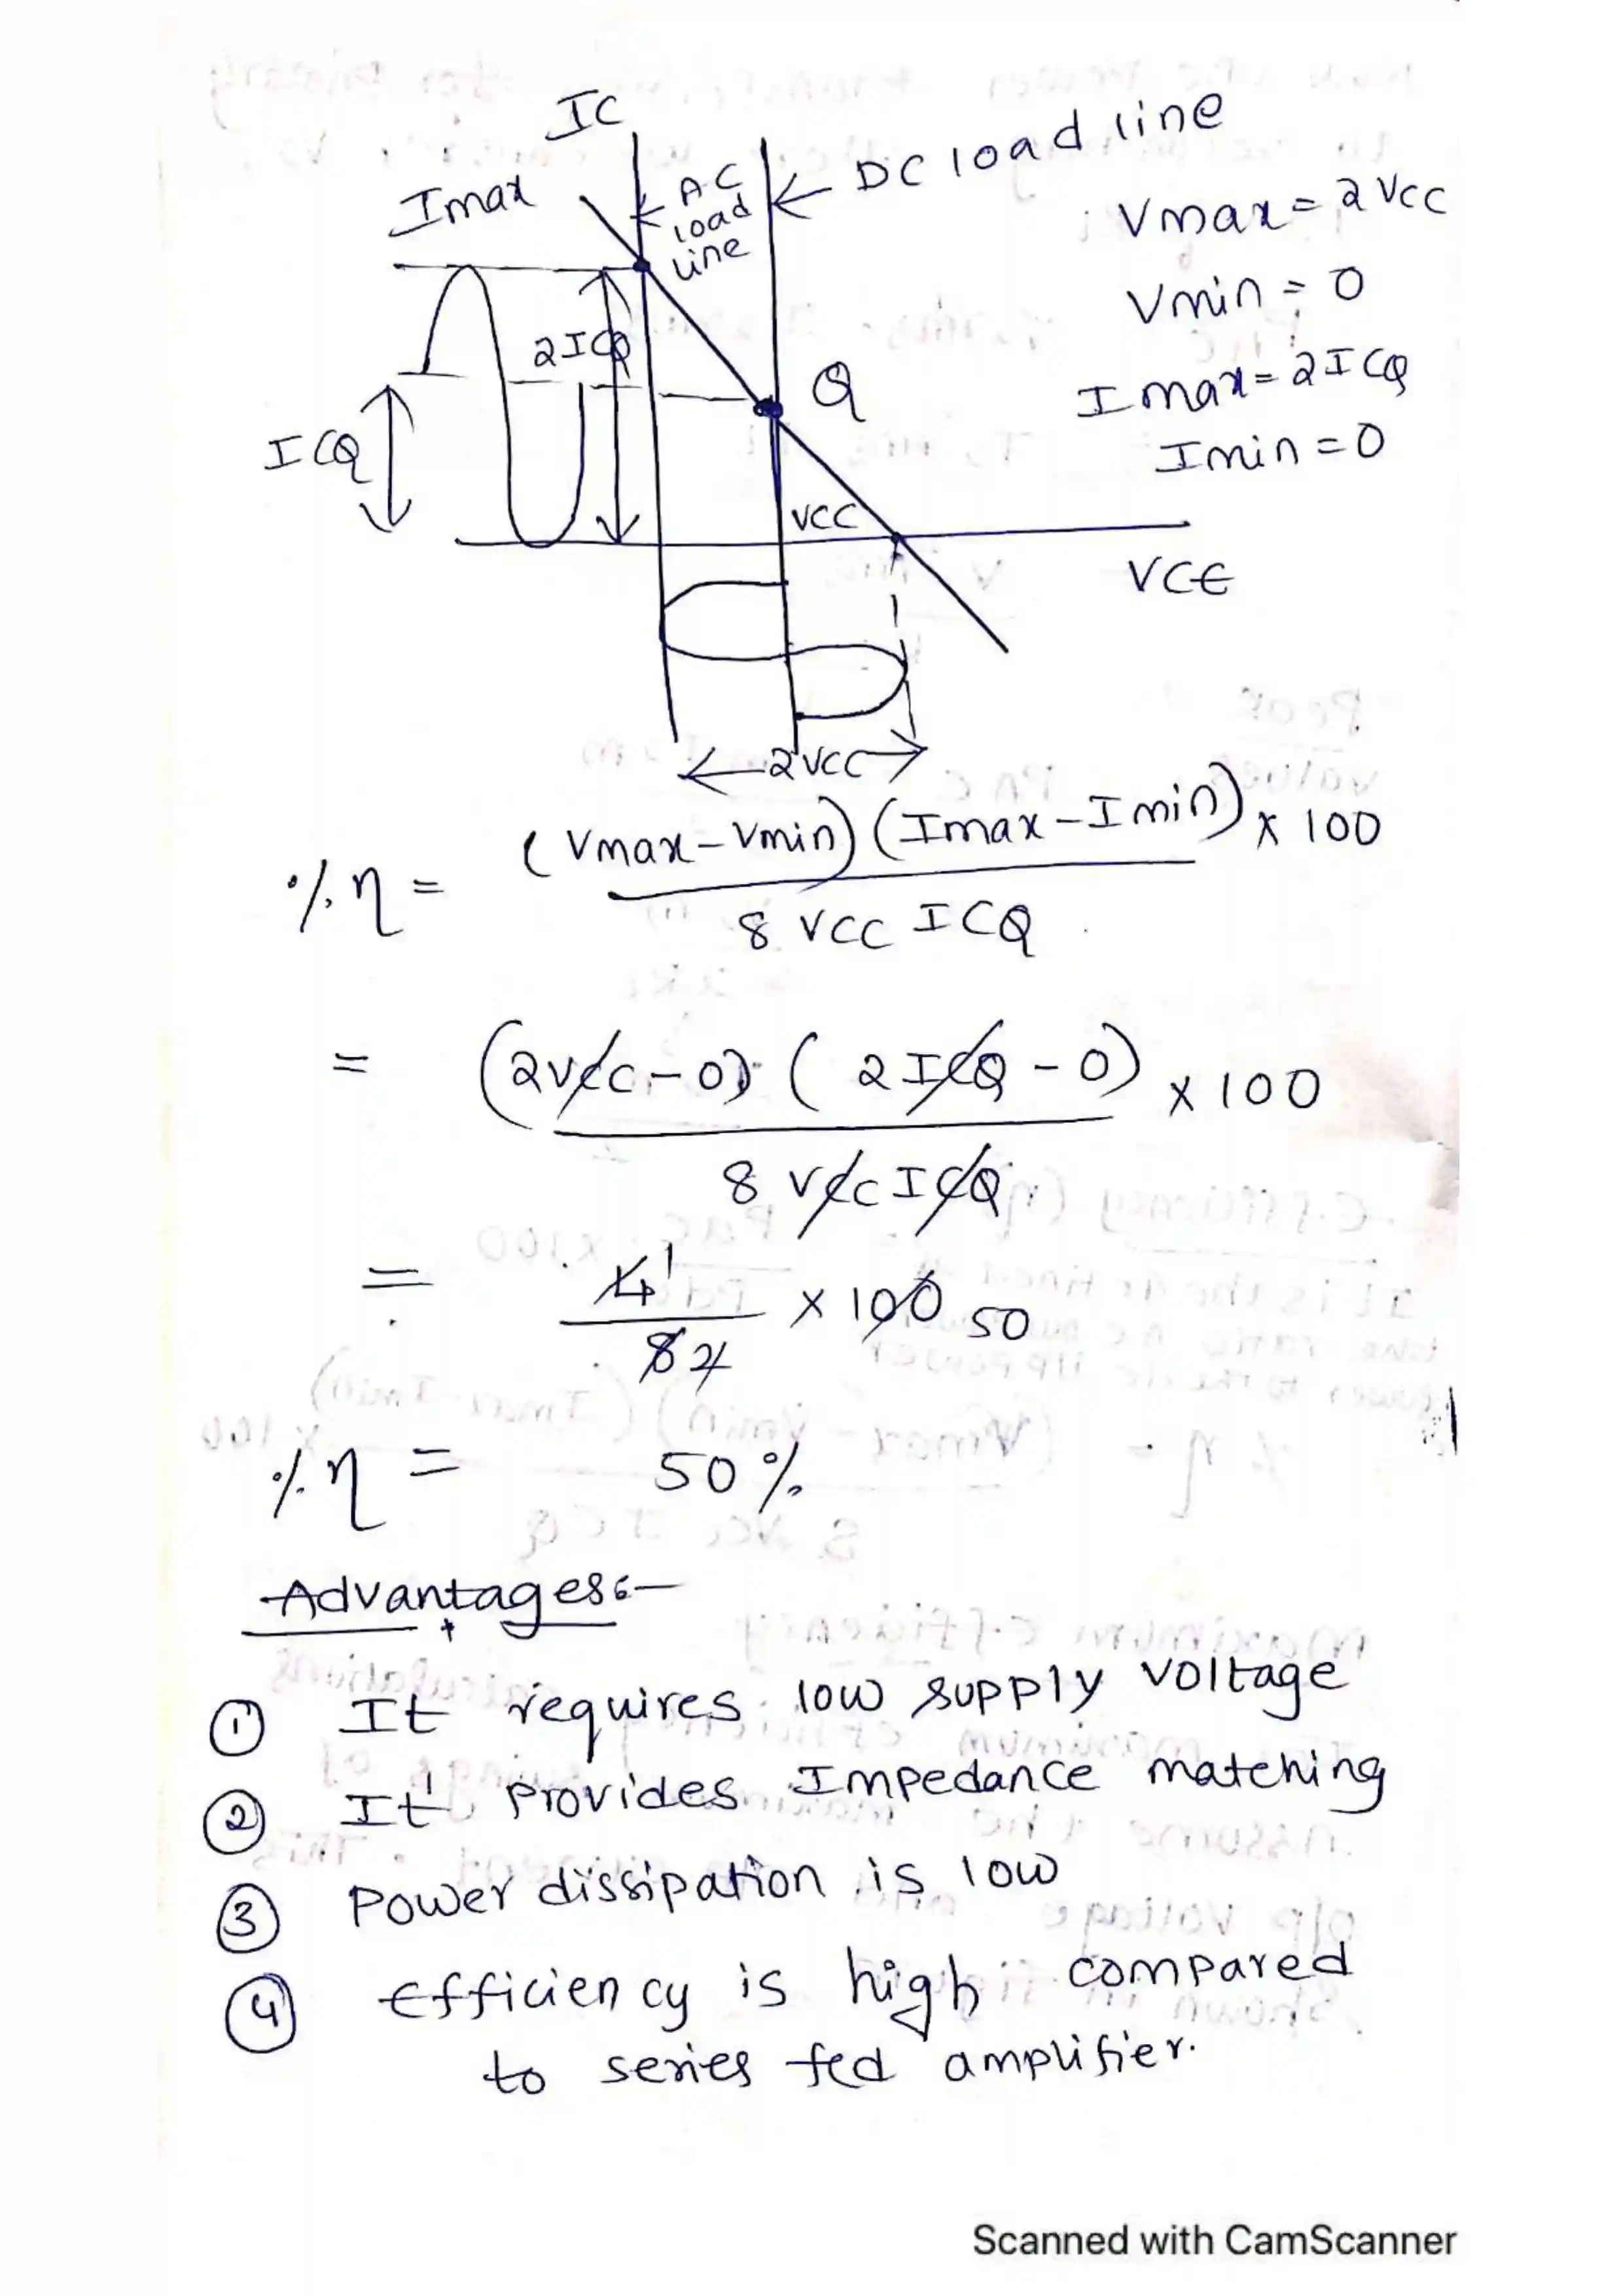 IC
Imax
AC
load
line
DC load line
Vmax = 2VCC
Vmin = 0
Imax = 2ICQ
Imin = 0
2ICQ
Q
ICQ
VCC
VCE
2VCC
% η = (Vmax - Vmin) (Imax - Imin) × 100
8 VCC ICQ
= (2VCC - 0) (2ICQ - 0) × 100
8 VCC ICQ
= 4 1 × 100 50
8 2
% η = 50 %
Advantages:-
① It requires low supply voltage
② It provides Impedance matching
③ Power dissipation is low
④ Efficiency is high compared
to series fed amplifier.
Scanned with CamScanner